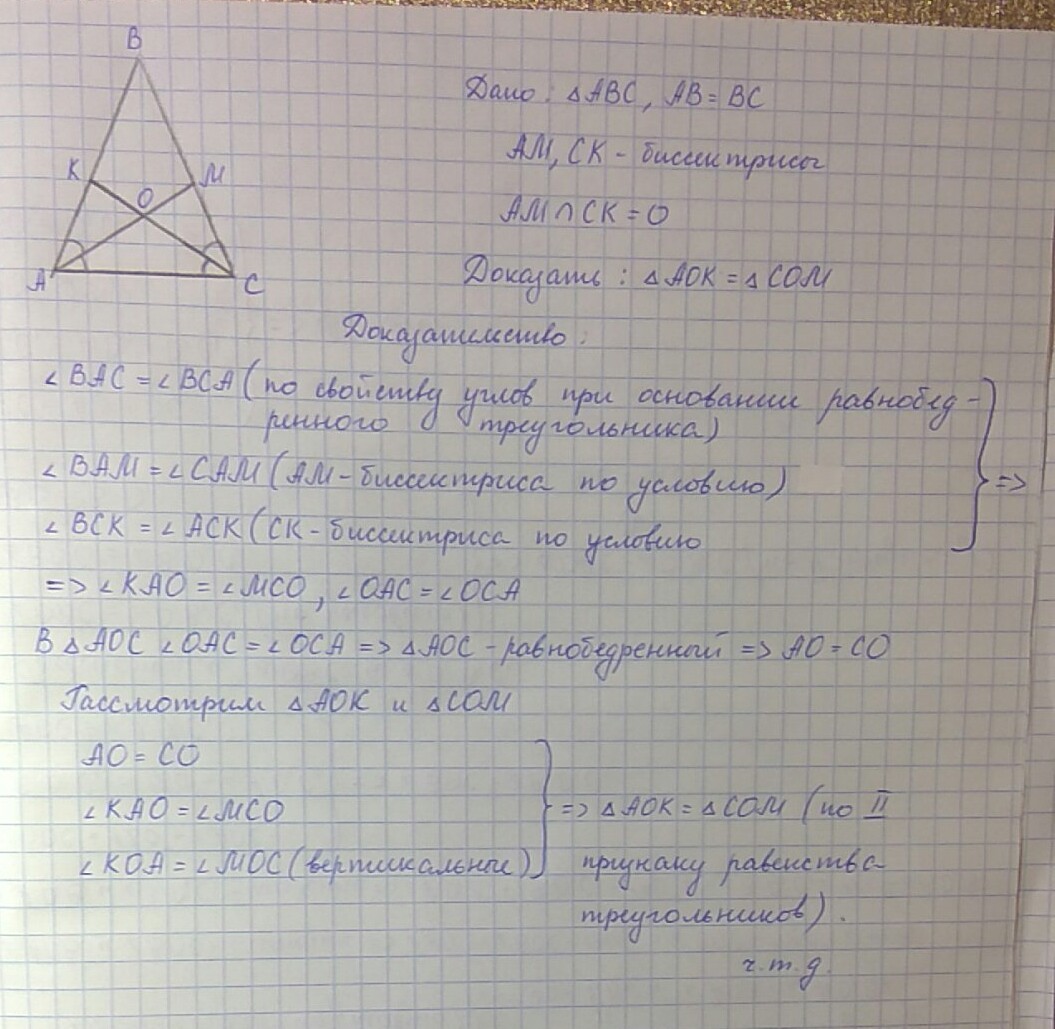 B
K
M
O
A
C
Дано: △ABC, AB = BC
AM, CK - биссектрисы
AM ∩ CK = O
Доказать: △AOK = △COM
Доказательство:
∠BAC = ∠BCA (по свойству углов при основании равнобед-
ренного треугольника)
∠BAM = ∠CAM (AM - биссектриса по условию)
=>
∠BCK = ∠ACK (CK - биссектриса по условию
=> ∠KAO = ∠MCO, ∠OAC = ∠OCA
В △AOC ∠OAC = ∠OCA => △AOC - равнобедренный => AO = CO
Рассмотрим △AOK и △COM
AO = CO
∠KAO = ∠MCO
∠KOA = ∠MOC (вертикальные)
=> △AOK = △COM (по II
признаку равенства
треугольников).
ч.т.д.